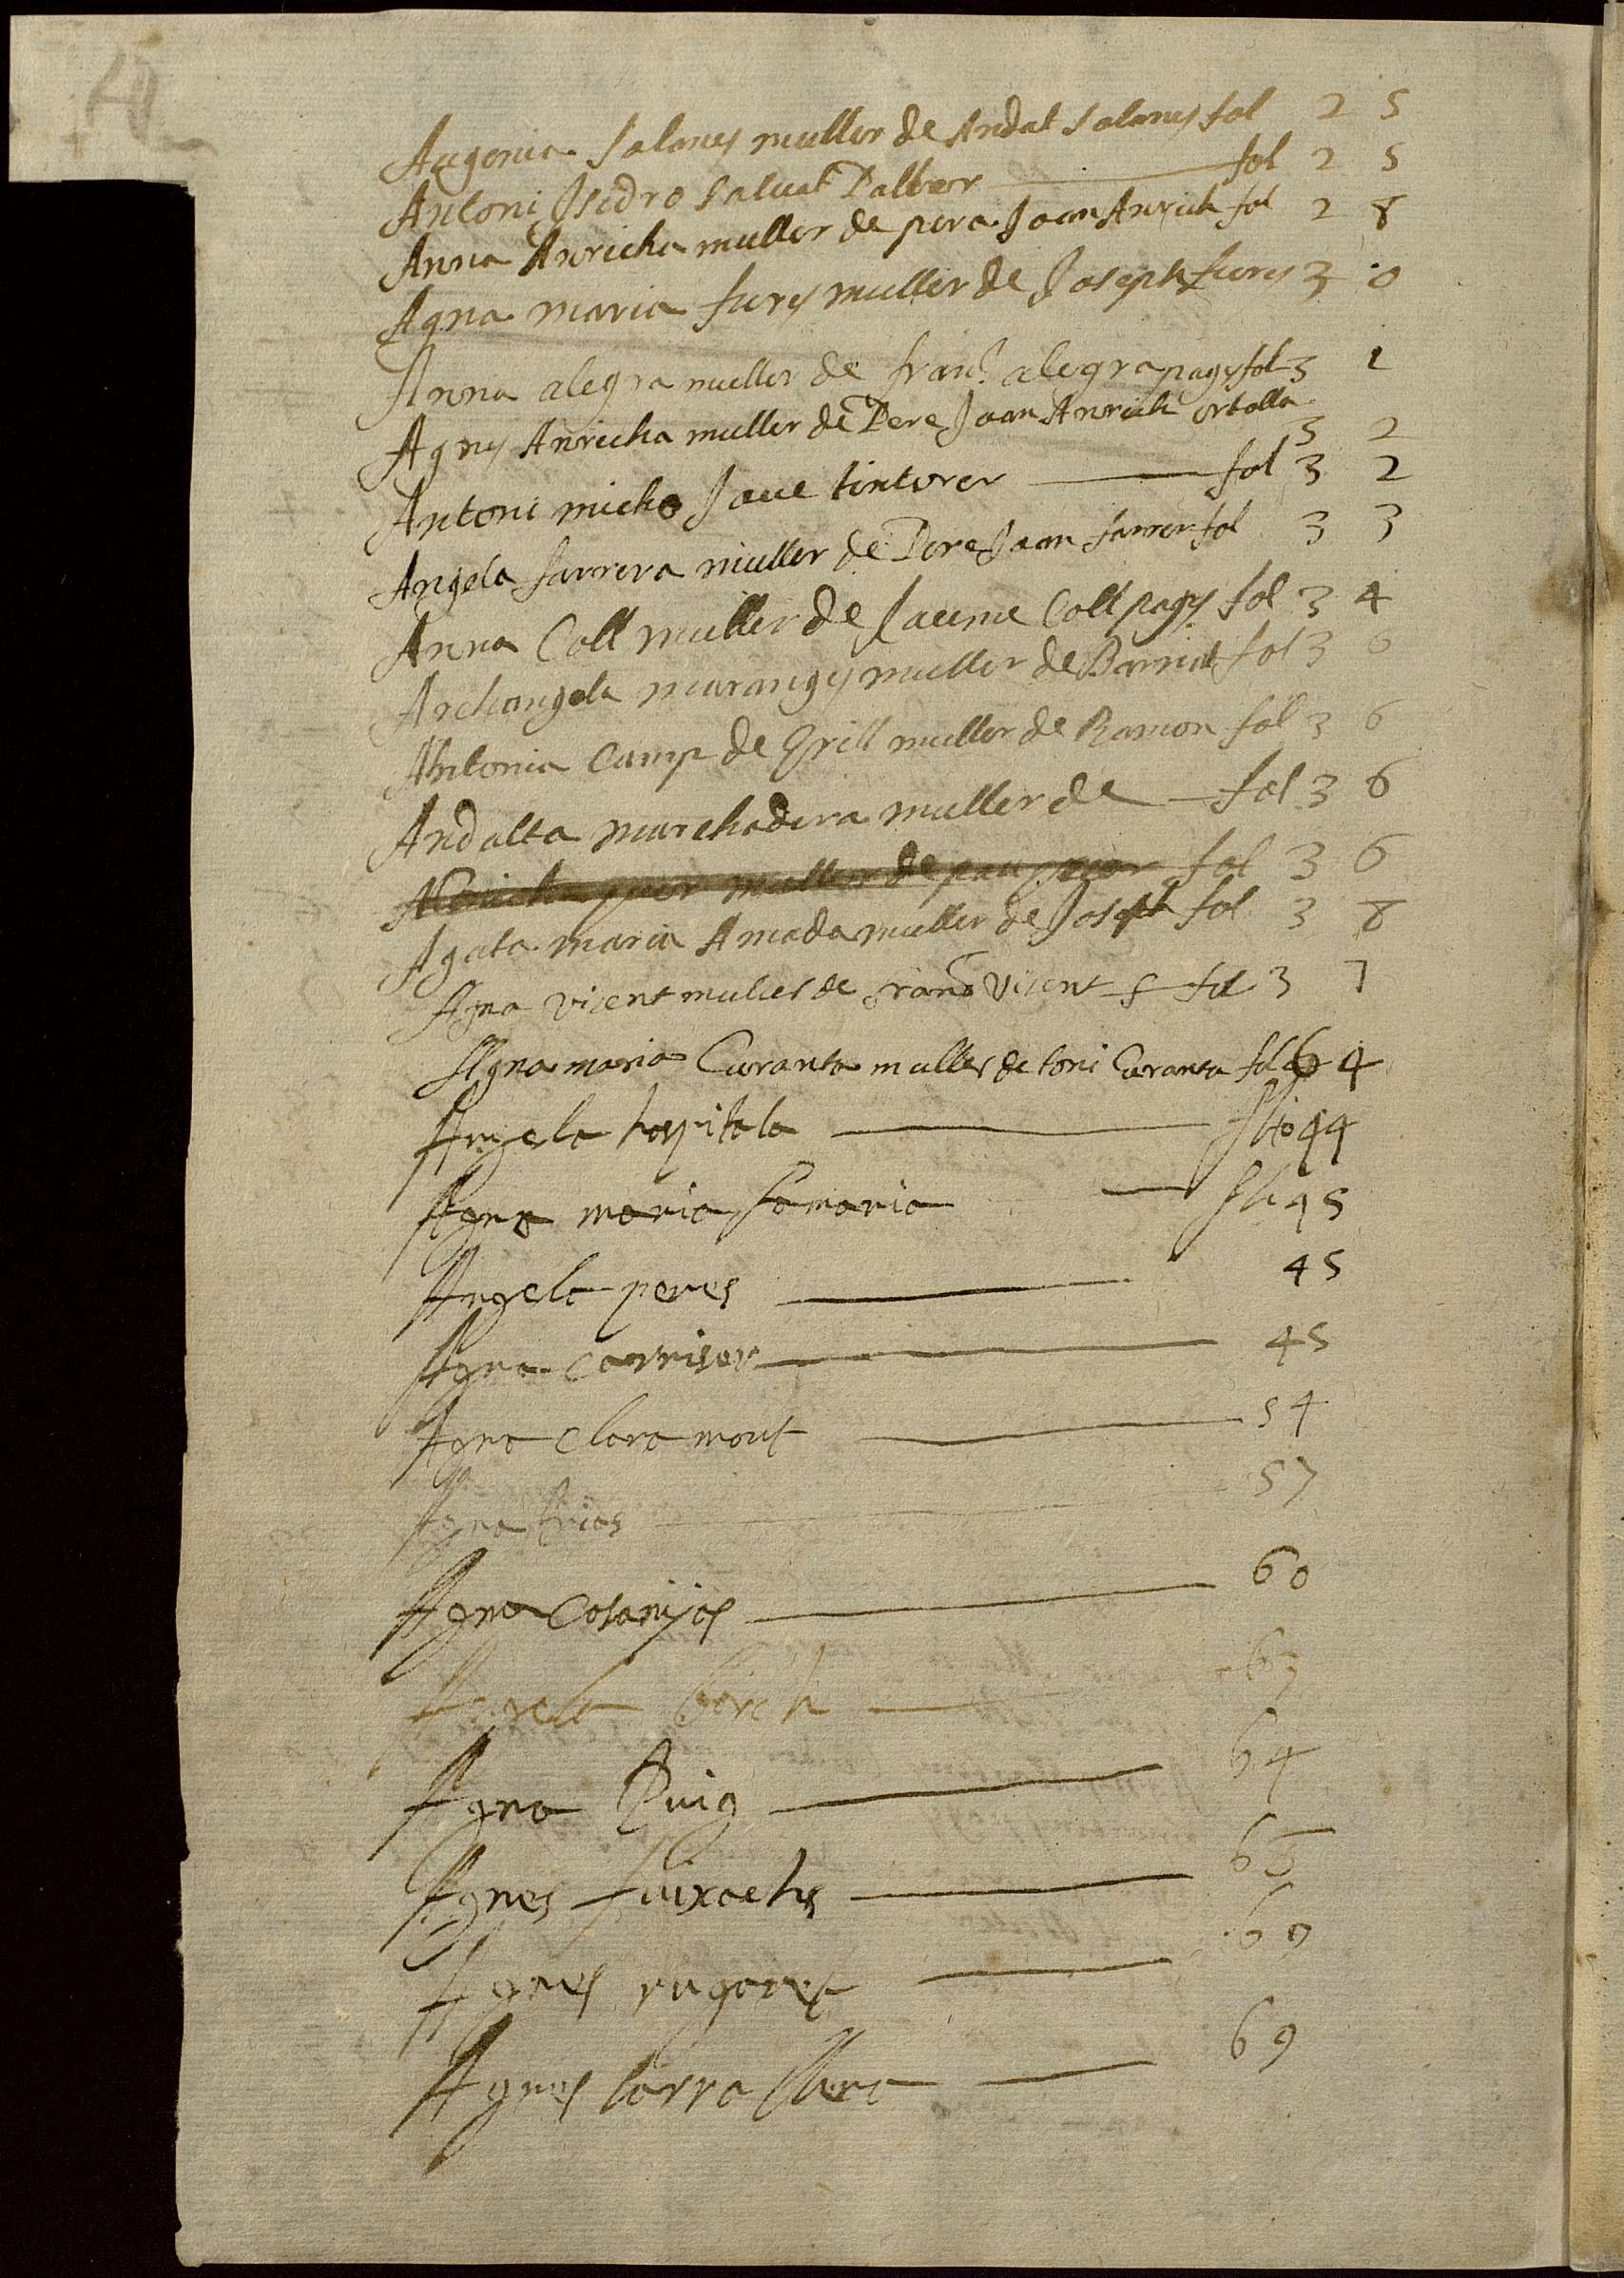 Augenia Salanes muller de Andal Salanes fol 25
Antoni Isidro Saluat Dalber fol 25
Anna Anricha muller de pera Joan Anrich fol 28
Agna maria fures muller de Joseph fures 30
Anna alegra muller de franc. alegra pages fol 31
Agnes Anricha muller de Pere Joan Anrich ortolla 32
Antoni micho Jaue tintorer fol 32
Angela farrera muller de Pere Joan farrer fol 33
Anna Coll muller de Jaume Coll pages fol 34
Archangela muranges muller de fol 36
Antonia Camp de Grill muller de Ramon fol 36
Andalta marchadera muller de fol 36
muller de pau fol 36
Agata maria Amada muller de Joseph fol 38
Agna Vicent muller de franco Vicent fol 37
Agna maria Caranta muller de toni Caranta fol 64
Angela hospitala 44
Agna maria 45
Angela peres 45
Agna carriser 45
Agna clara mont 54
Agna frias 57
Agna 60
Angela 63
Agna Puig 64
Agnes 65
Agnes 69
Agnes 69